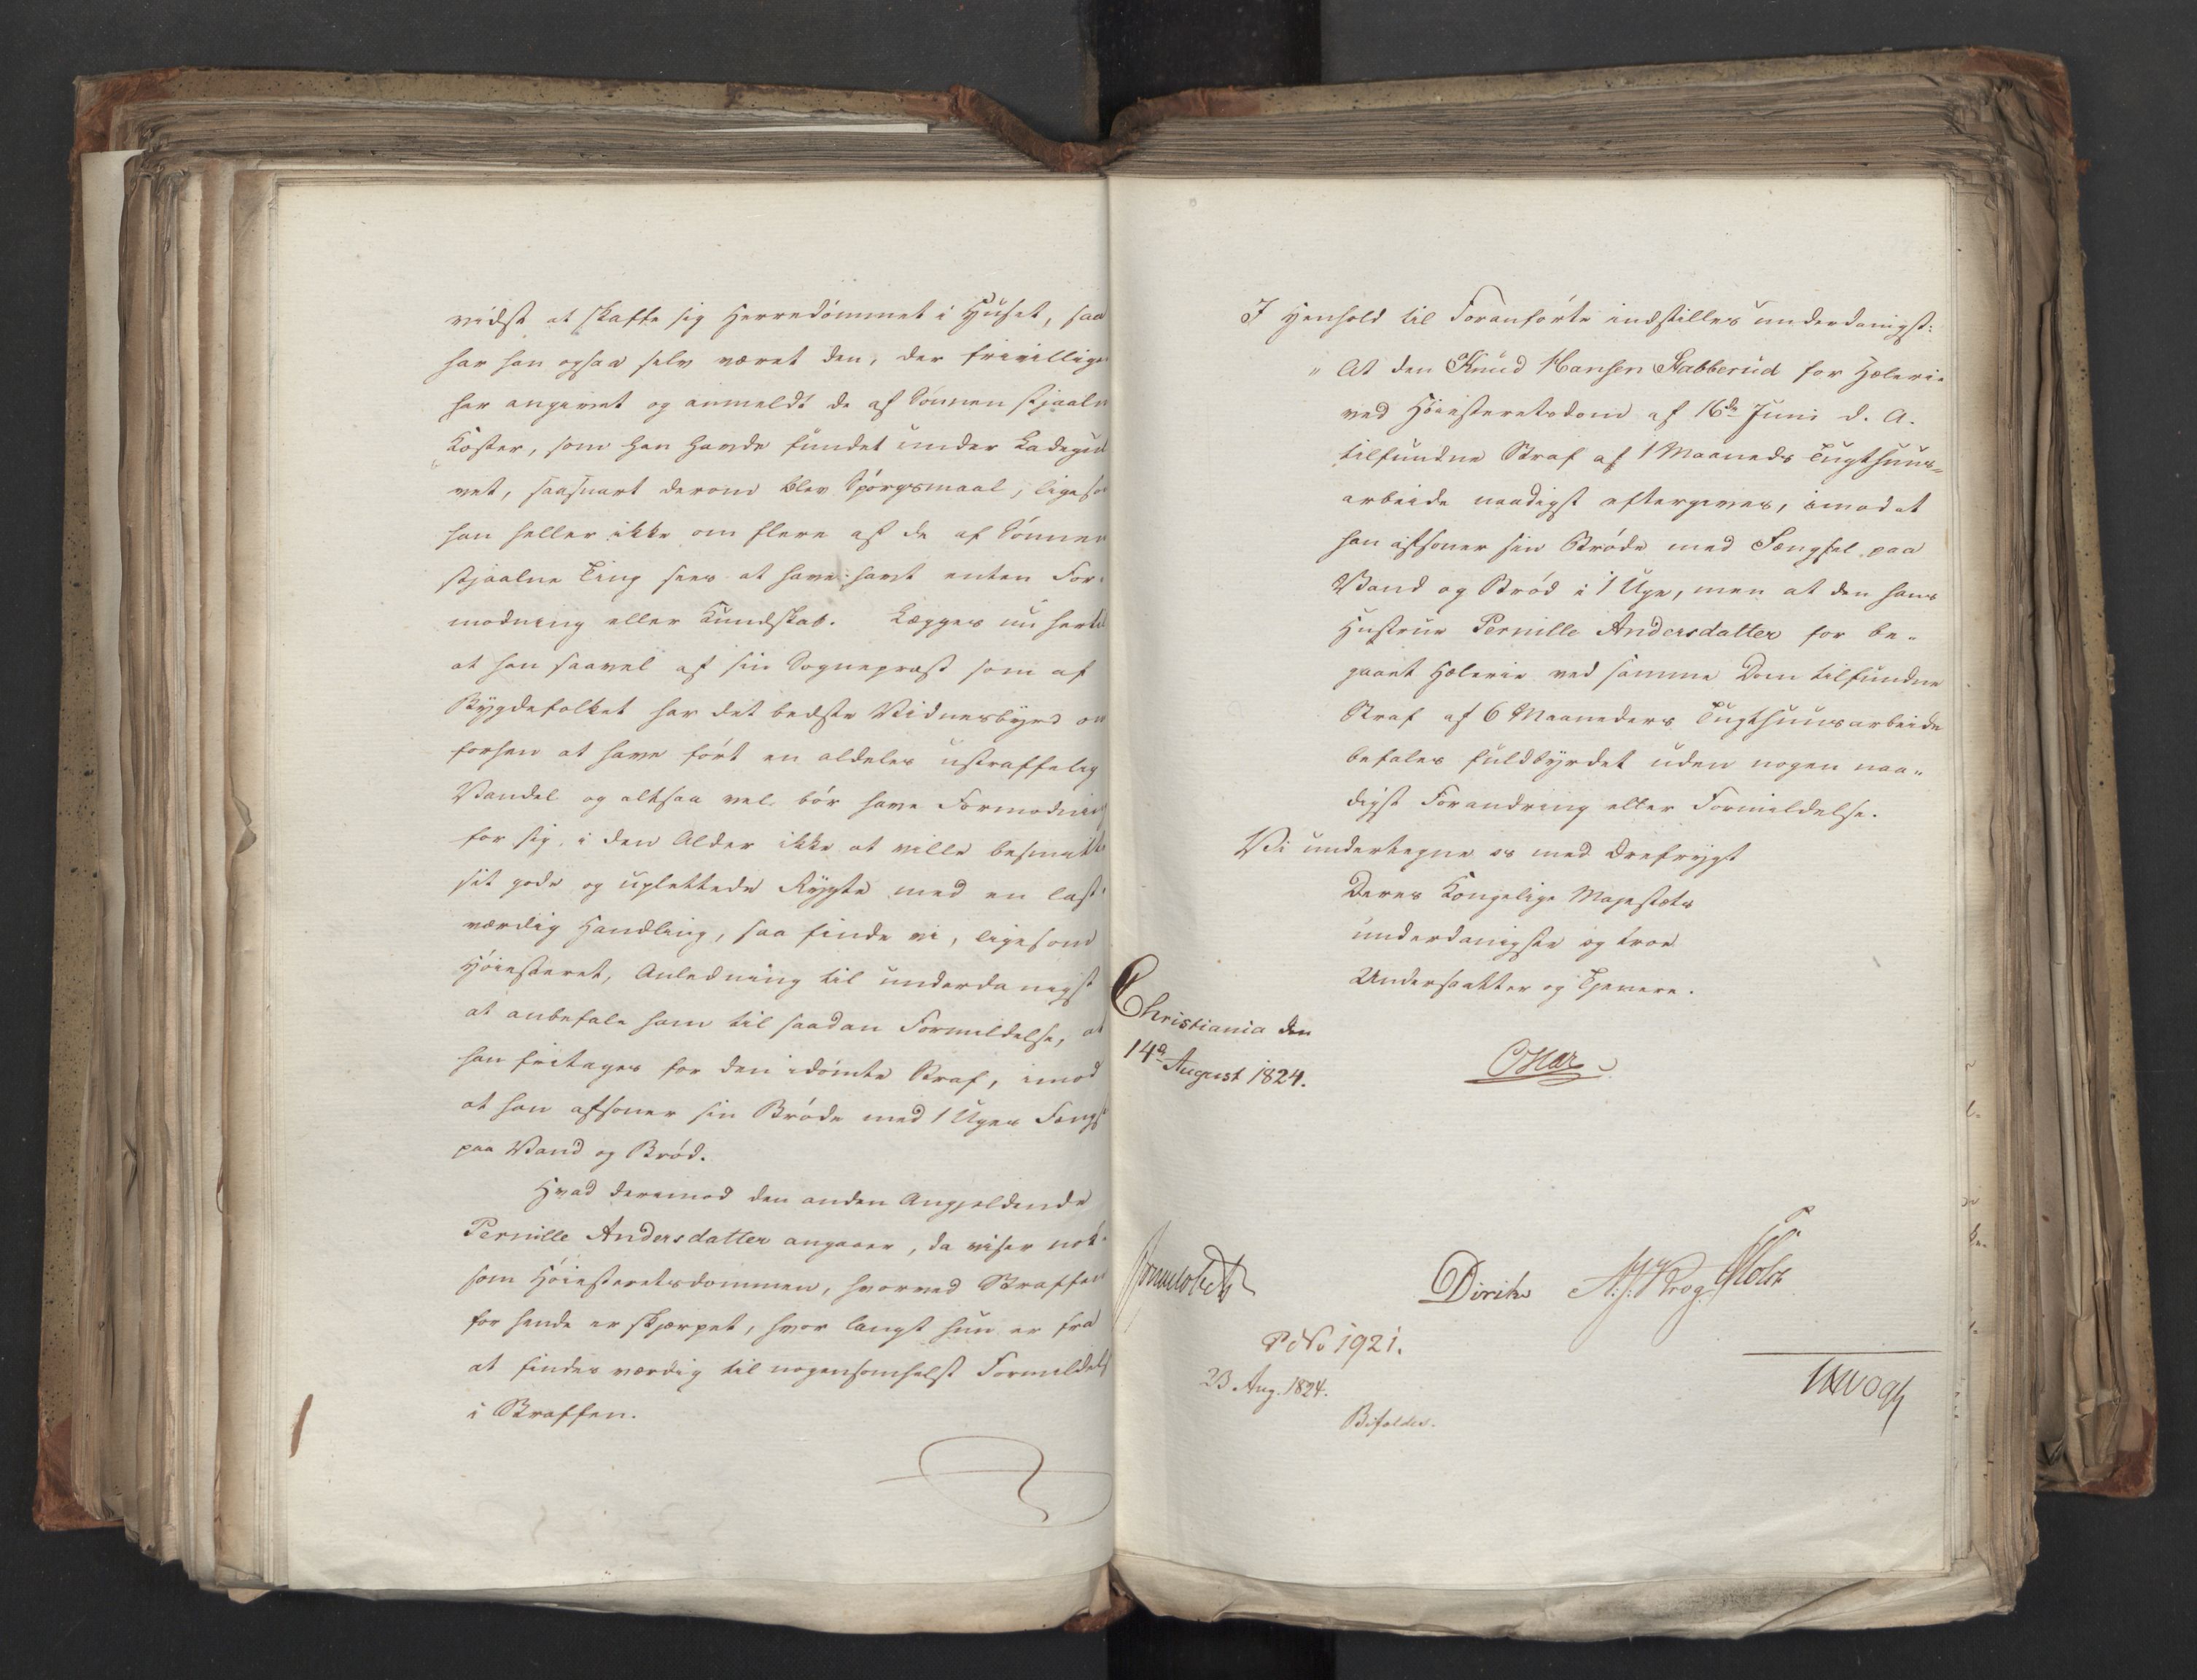 vidst at skaffe sig Herredømmet i Huset, saa
har han ogsaa selv været den, der frivillige
har angivet og anmeldt de af Sønnen stjaalne
Koster, som han havde fundet under Ladegul
vet, saasnart derom blev Spørgsmaal, ligesom
han heller ikke om flere af de af Sønnen
stjaalne Ting sees at have havt enten For-
modning eller Kundskab. Lægges nu hertil
at han saavel af sin Sognepræst som af
Bygdefolket har det bedste Vidnesbyrd om
forhen at have ført en aldeles ustraffelig
Vandel og altsaa vel bør have Formodning
for sig, i den Alder ikke at ville besmitte
sit gode og uplettede Rygte med en last-
værdig Handling, saa finde vi, ligesom
Høiesteret, Anledning til underdanigst
at anbefale ham til saadan Formildelse, at
han fritages for den idømte Straf, imod
at han afsoner sin Brøde med 1 Uges Fængs
paa Vand og Brød.
Hvad derimod den anden Angjeldende
Pernille Andersdatter angaaer, da viser nok-
som Høiesteretsdommen, hvorved Straffen
for hende er skjærpet, hvor langt hun er fra
at findes værdig til nogensomhelst Formildelse
i Straffen.
I Henhold til Foranførte indstilles underdanigst:
" At den Knud Hansen Stabberud for Hæleri
ved Høiesteretsdom af 16de Juni d. A.
tilfundne Straf af 1 Maaneds Tugthuus-
arbeide naadigst eftergives, imod at
han afsoner sin Brøde med Fængsel paa
Vand og Brød i 1 Uge, men at den hans
Hustrue Pernille Andersdatter for be-
gaaet Hælerie ved samme Dom tilfundne
Straf af 6 Maaneders Tugthuusarbeide
befales fuldbyrdet uden nogen naa-
digst Forandring eller Formildelse.
Vi undertegne os med Ærefrygt
Deres Kongelige Majestæts
underdanigste og troe
Undersaatter og Tjenere.
Christiania den
14de August 1824.
Oscar
Sommerhielm
Diriks
A. J. Krog
Holst
P No 1921.
23 Aug. 1824.
Bifaldes.
JHVogt